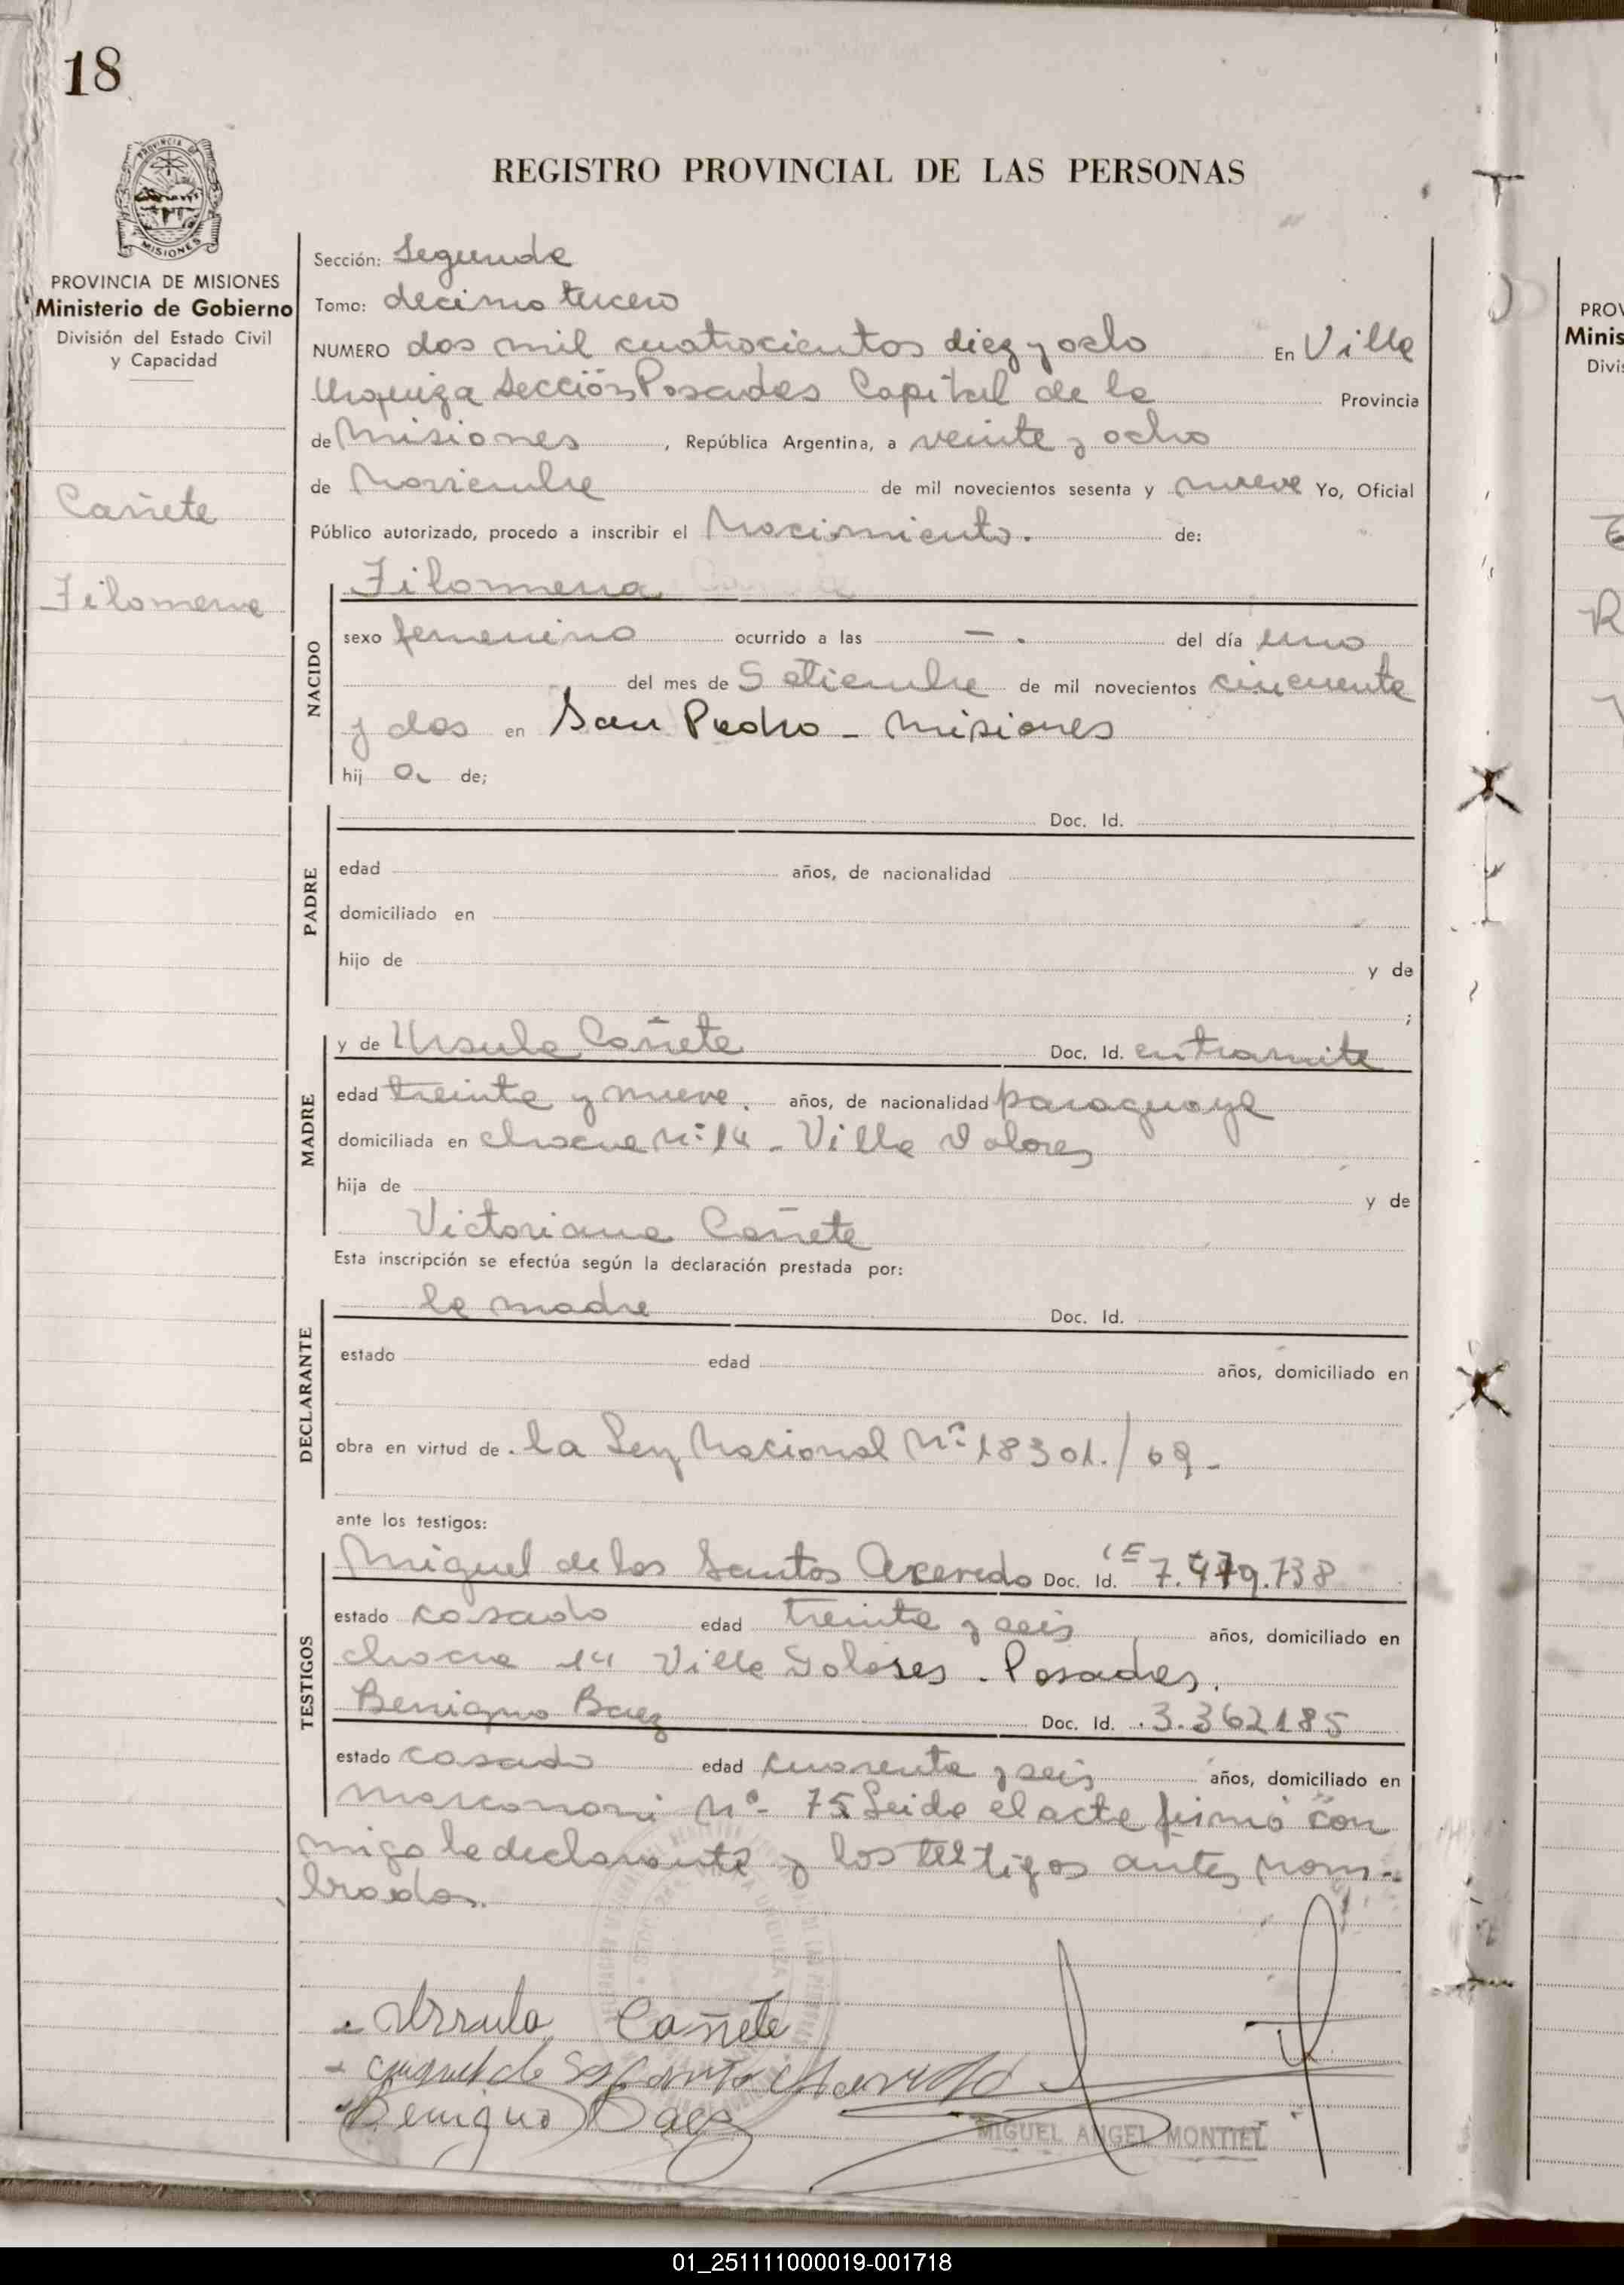 18
PROVINCIA DE
MISIONES
PROVINCIA DE MISIONES
Ministerio de Gobierno
División del Estado Civil
y Capacidad
Cañete
Filomena
REGISTRO PROVINCIAL DE LAS PERSONAS
Sección: Segunda
Tomo: decimo tercero
NUMERO dos mil cuatrocientos diez y ocho En Villa
Urquiza Sección Posadas Capital de la Provincia
de Misiones, República Argentina, a veinte y ocho
de Noviembre de mil novecientos sesenta y nueve Yo, Oficial
Público autorizado, procedo a inscribir el Nacimiento. de:
NACIDO
Filomena
sexo femenino ocurrido a las - . del día uno
del mes de Setiembre de mil novecientos cincuenta
y dos en San Pedro - Misiones
hij a de;
PADRE
Doc. Id.
edad años, de nacionalidad
domiciliado en
hijo de y de
;
MADRE
y de Ursula Cañete Doc. Id. en tramite
edad treinta y nueve. años, de nacionalidad paraguaya
domiciliada en chacra Nº 14 - Villa Dolores
hija de y de
Victoriana Cañete
Esta inscripción se efectúa según la declaración prestada por:
DECLARANTE
la madre Doc. Id.
estado edad años, domiciliado en
obra en virtud de. la Ley Nacional Nº 18301./69-
ante los testigos:
TESTIGOS
Miguel de los Santos Acevedo Doc. Id. 7.479.738
estado casado edad treinta y seis años, domiciliado en
chacra 14 Villa Dolores - Posadas.
Benigno Baez Doc. Id. .3.362185
estado casado edad cuarenta y seis años, domiciliado en
Nº 75 Leida el acte firmó con
migo la declarante y los testigos antes nom-
brados.
Ursula Cañete
Benigno Baez
MIGUEL ANGEL MONTIEL
PROV
Minis
Divi
01_251111000019-001718